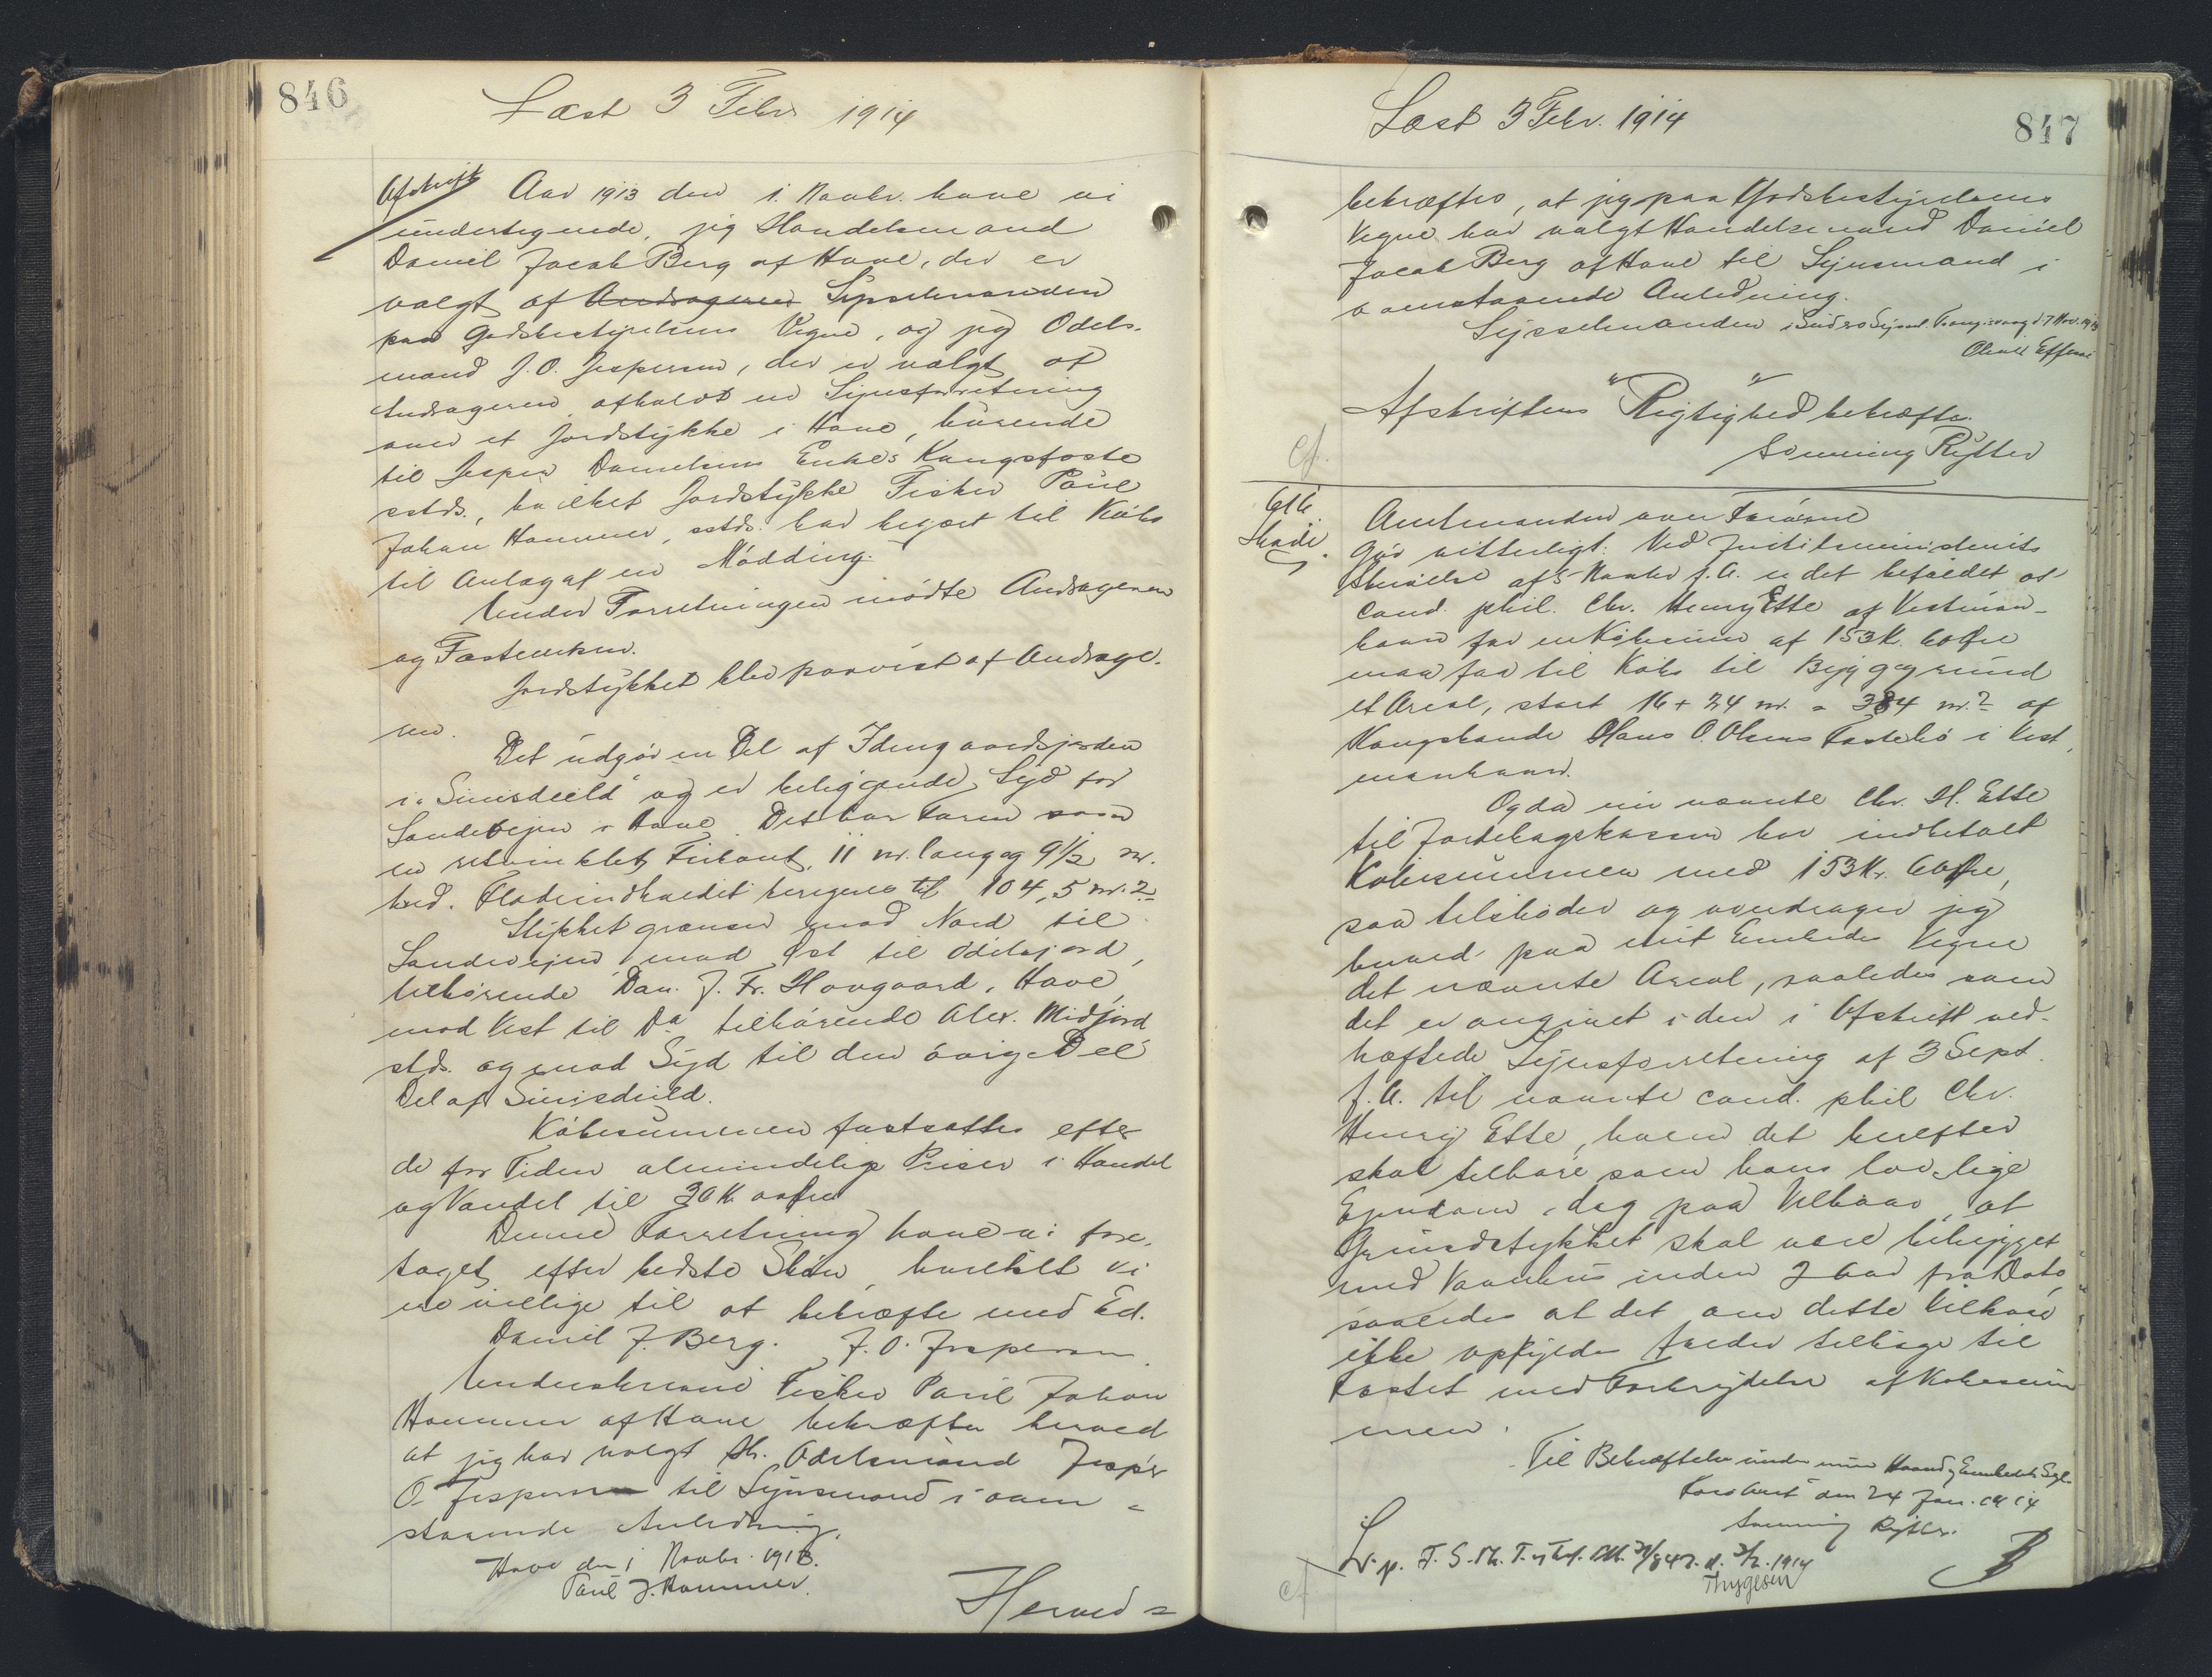 846
Læst 3 Febr. 1914
Afskrift Aar 1913 den 1. Novbr. have vi
undertegnede, jeg Handelsmand
Daniel Jacob Berg af Hove, der er
valgt af Andrageren Sysselmanden
paa Godsbestyrelsens Vegne, og jeg Odels-
mand J. O. Jespersen, der er valgt af
Andrageren, afholdt en Synsforretning
over et Jordstykke i Hove, hørende
til Jesper Danielsens Enkes Kongsfæste
sstds., hvilket Jordstykke Fisker Poul
Johan Hammer, sstds. har begært til Købs
til Anlæg af en Mødding.
Under Forretningen mødte Andrageren
og Fæsteenken.
Jordstykket blev paavist af Andrage-
ren.
Det udgør en Del af Indengaardsjorden
i "Sunsdeild" og er beliggende Syd for
Landevejen i Hove. Det har Form som
en retvinklet Firkant, 11 m. lang og 9 1/2 m.
bred. Fladeindholdet beregnes til 104,5 m.2
Stykket grænser mod Nord til
Landevejen, mod Øst til Odelsjord,
tilhørende Dan. J. Fr. Hovgaard, Hove,
mod Vest til Do tilhørende Alex. Midjord
stds. og mod Syd til den øvrige Del
Del af Sunsdeild.
Købesummen fastsattes efter
de for Tiden almindelige Priser i Handel
og Vandel til 30 K. 00 Øre
Denne Forretning have vi fore-
taget efter bedste Skøn, hvilket vi
ere villige til at bekræfte med Ed.
Daniel J. Berg. J. O. Jespersen.
Underskrevne Fisker Poul Johan
Hammer af Hove bekræfter herved
at jeg har valgt Hr. Odelsmand Jesper
O. Jespersen til Synsmand i oven-
staaende Anledning.
Hove den 1 Novbr. 1913.
Poul J. Hammer.
Herved=
Læst 3 Febr. 1914
847
bekræftes, at jeg paa Godsbestyrelsens
Vegne har valgt Handelsmand Daniel
Jacob Berg af Hove til Synsmand i
ovenstaaende Anledning.
Sysselmanden i Suderø Syssel. Trangisvaag d. 7 Nov. 1913
Effersøe
Afskriftens Rigtighed bekræftes.
Sonning Rytter
cf.
Skøde.
Amtmanden over Færøerne
Gør vitterligt: Ved Justitsministeriets
Skrivelse af 5 Novbr f. A. er det befalet at
cand. phil. Chr. Henry Ette af Vestman-
havn for en Købesum af 153 K. 60 Øre
maa faa til Købs til Byggegrund
et Areal, stort 16 + 24 m. = 384 m.2 af
Kongsbonde Hans O. Olsens Fæstebø i Vest-
manhavn.
Og da nu nævnte Chr. H. Ette
til Jordebogskassen har indbetalt
Købesummen med 153 Kr. 60 Øre,
saa tilskøder og overdrager jeg
herved paa mit Embedes Vegne
det nævnte Areal, saaledes som
det er angivet i den i Afskrift ved-
hæftede Synsforretning af 3 Sept.
f. A. til nævnte cand. phil Chr.
Henry Ette, hvem det herefter
skal tilhøre som hans lovlige
Ejendom, dog paa Vilkaar, at
Grundstykket skal være bebygget
med Vaanhus inden 2 Aar fra Dato
saaledes at det om dette Vilkaar
ikke opfyldes falder tilbage til
Fæstet med Fortrydelse af Købesum-
men.
Til Bekræftelse under min Haand og Embedets Segl.
Færø Amt den 24 Jan. 1914
Sonning Rytter.
3/2. 1914
Thygesen
cf